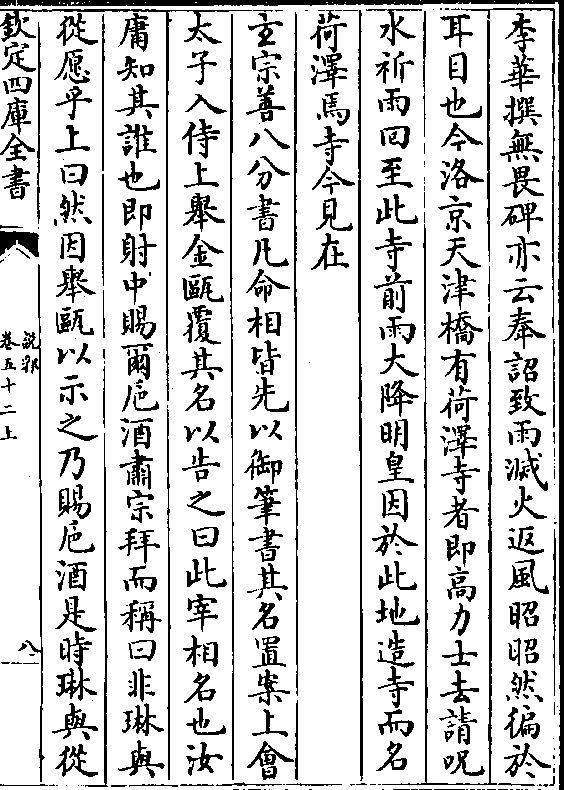 李華撰無畏碑亦云奉詔致雨滅火返風昭昭然徧於
耳目也今洛京天津橋有荷澤寺者即髙力士去請呪
水祈雨回至此寺前雨大降明皇因於此地造寺而名
荷澤焉寺今見在
𤣥宗善八分書凡命相皆先以御筆書其名置案上㑹
太子入侍上舉金甌覆其名以告之曰此宰相名也汝
庸知其誰也即射中賜爾巵酒肅宗拜而稱曰非琳與
從愿乎上曰然因舉甌以示之乃賜巵酒是時琳與從
欽定四庫全書
說郛
卷五十二上
八